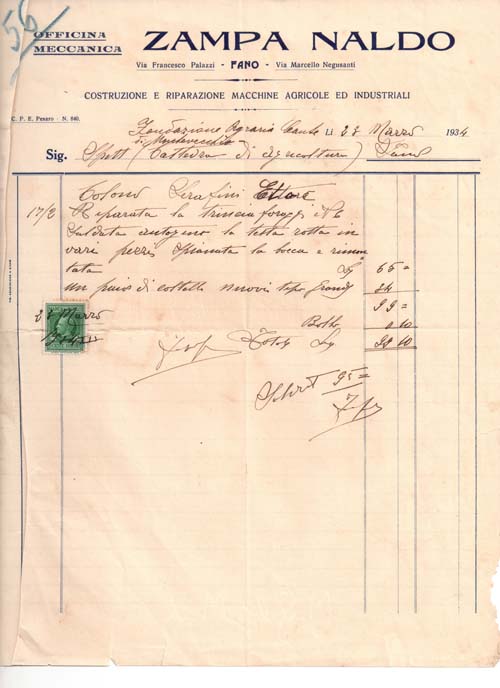 56
OFFICINA
MECCANICA
ZAMPA NALDO
Via Francesco Palazzi - FANO - Via Marcello Negusanti
COSTRUZIONE E RIPARAZIONE MACCHINE AGRICOLE ED INDUSTRIALI
C. P. E. Pesaro - N. 840.
Fondazione Agraria Conte Li 28 Marzo 1934
di Montevecchio
Sig. Spett (Cattedra di agricoltura) Fano
Colono Serafini Ettore
17/2 Riparata la trincia foraggi
Saldata autogeno la testa rotta in
vari pezzi spianata la bocca e rimon
tata 65 =
un paio di coltelli nuovi tipo grandi 34
99 =
28 Marzo
Bollo 0 10
Totale 99 10
95 =